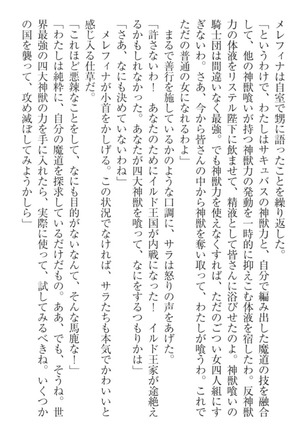 メレフィナは自室で甥に語ったことを繰り返した。
「というわけで、わたしはサキュバスの神獣力と、自分で編み出した魔道の技を融合
して、他の神獣喰いが持つ神獣力の発動を一時的に抑えこむ体液を宿したわ。反神獣
力の体液をリステル陛下に飲ませて、精液として皆さんに浴びせたのよ。神獣喰いの
騎士団は間違いなく最強。でも神獣力を使えなくすれば、ただのごつい女四人組にす
ぎないわ。さあ、今から皆さんの中から神獣を奪い取って、わたしが喰うわ。これで
ただの普通の女になれるわよ」
まるで善行を施しているかのような口調に、サラは怒りの声をあげた。
「許さないわ！　あなたのためにイルド王国が内戦になった！　イルド王家が途絶え
るかもしれなかった。あなたが四大神獣を喰って、なにをするつもりかは」
「さあ、なにも決めていないわね」
メレフィナが小首をかしげる。この状況でなければ、サラたちも本気でかわいいと
感じ入る仕草だ。
「これほど悪辣なことをして、なにも目的がないなんて、そんな馬鹿な！」
「わたしは純粋に、自分の魔道を探求しているだけだもの。ああ、でも、そうね。世
界最強の四大神獣の力を手に入れたら、実際に使って、試してみるべきね。いくつか
の国を襲って、攻め滅ぼしてみようかしら」